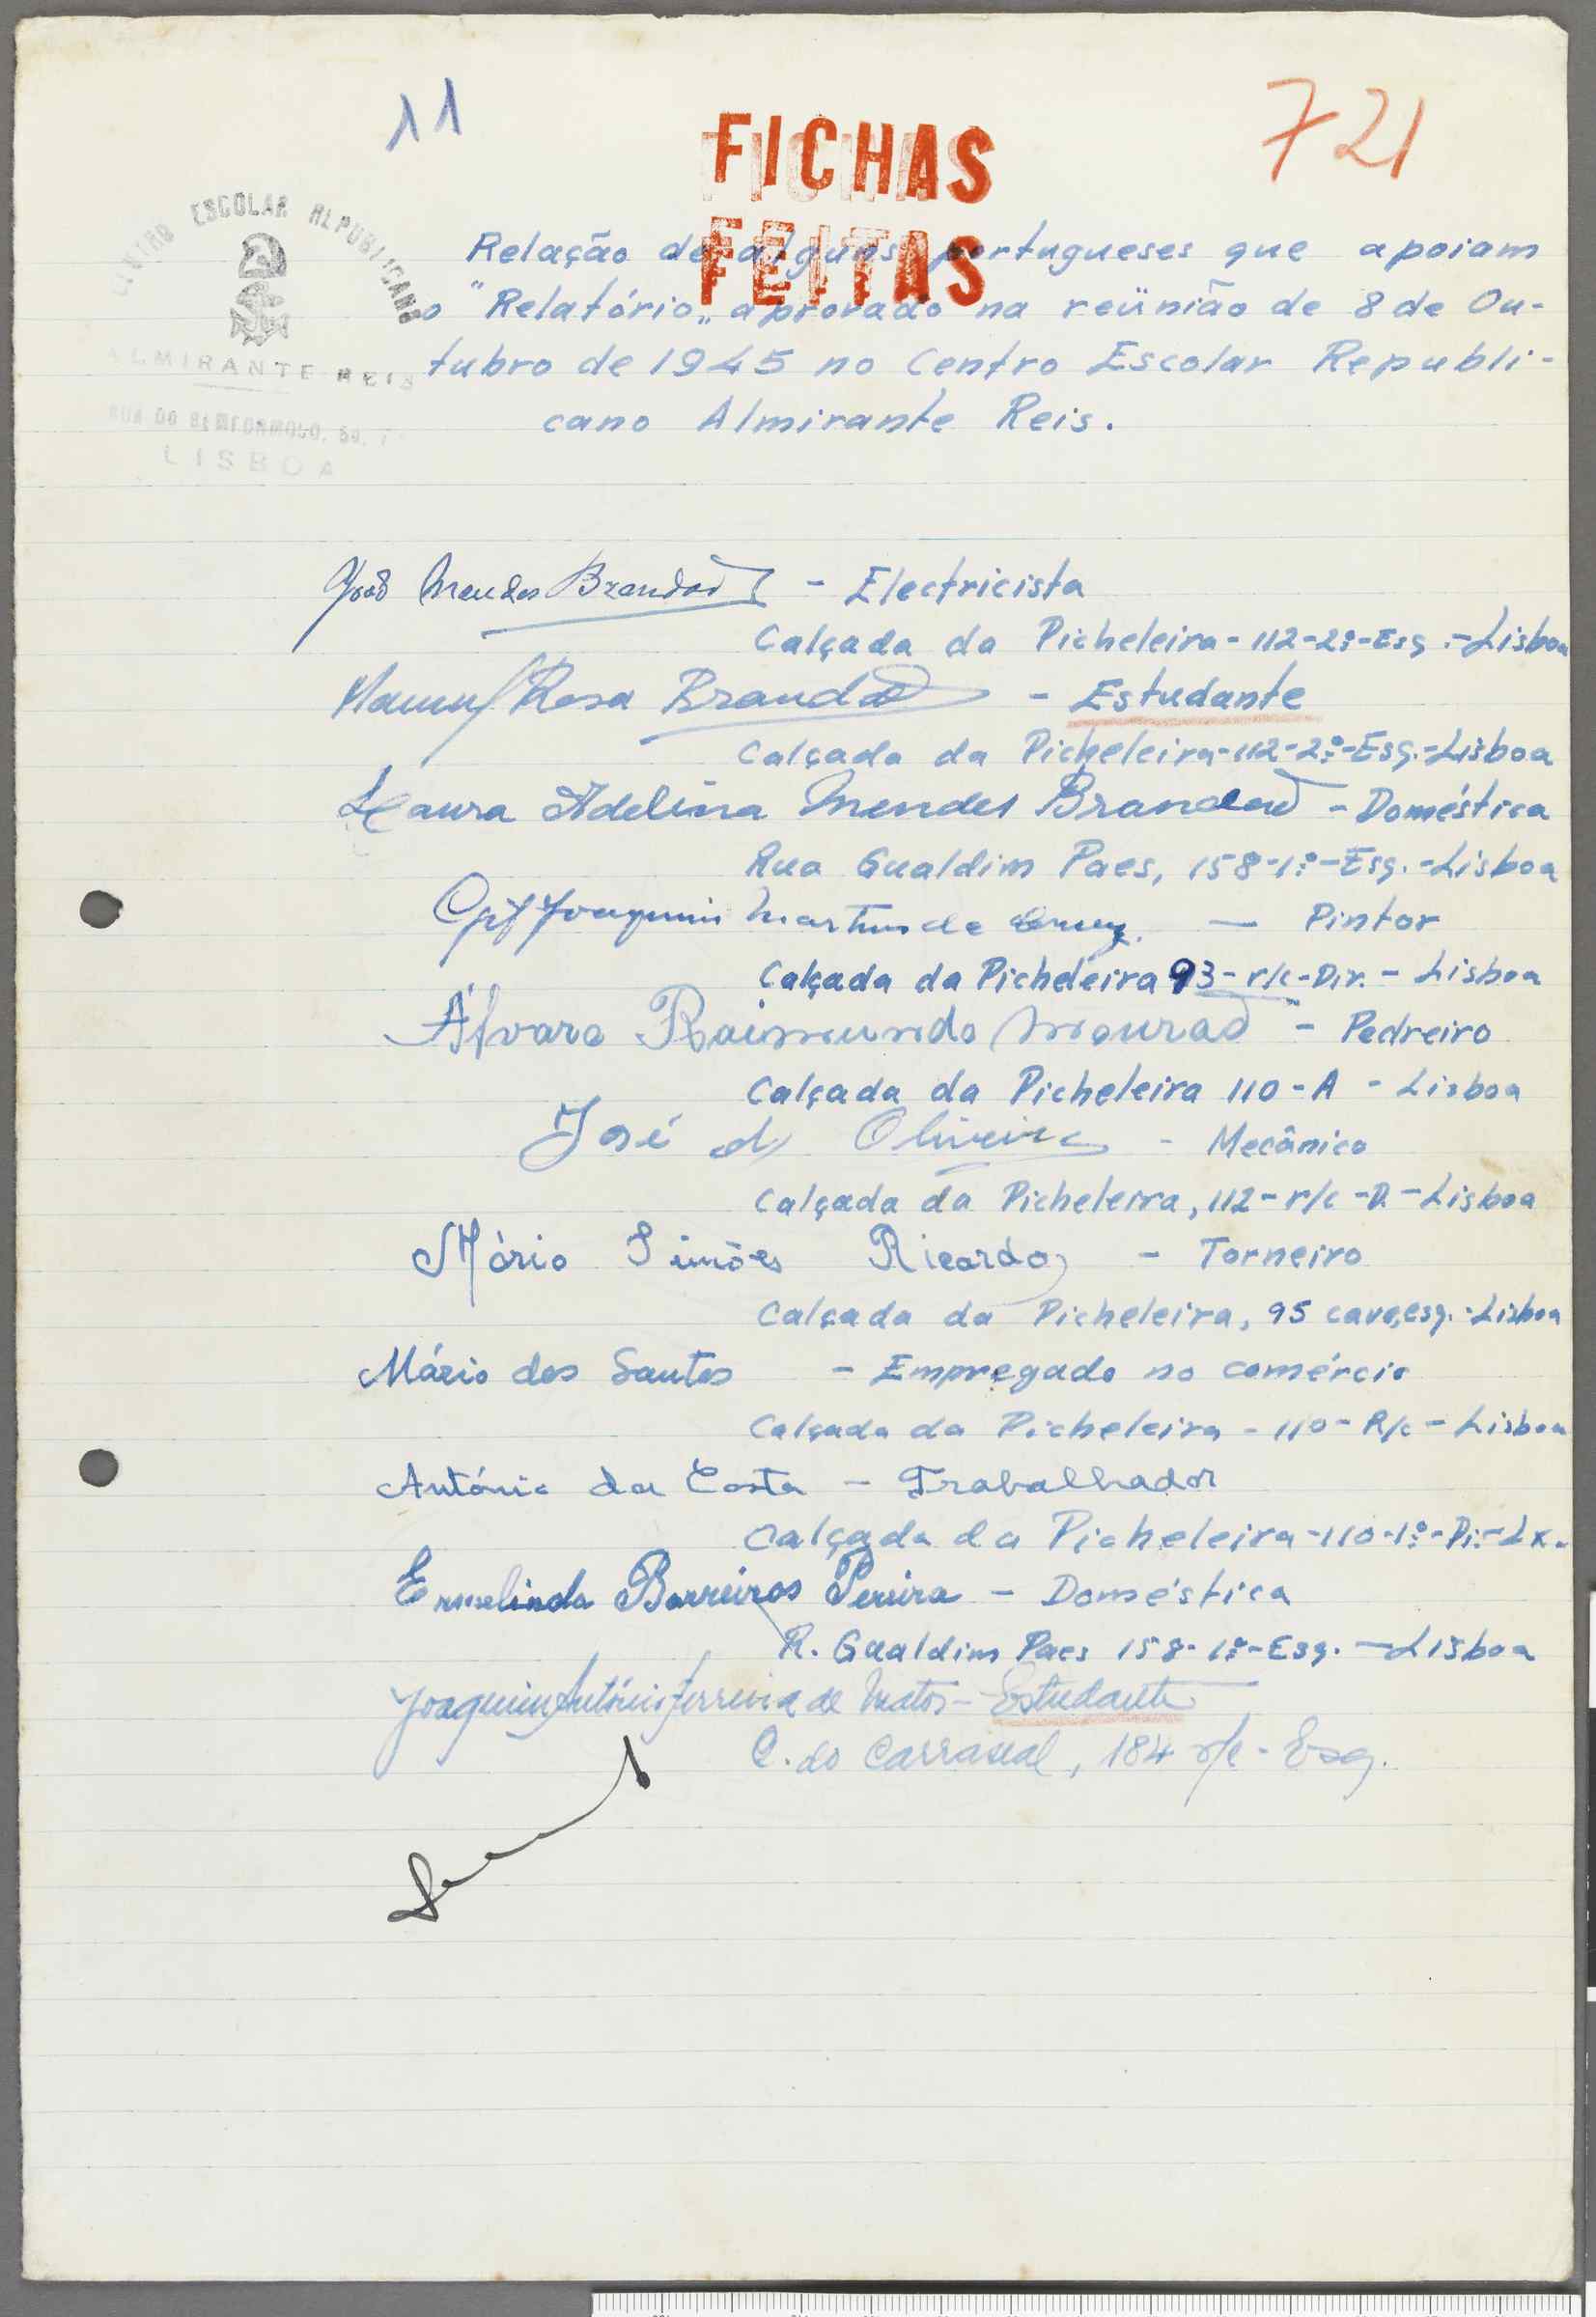 11
721
FICHAS
FEITAS
CENTRO ESCOLAR REPUBLICANO
ALMIRANTE REIS
RUA DO BEMFORMOSO, 50, 1º
LISBOA
Relação de alguns portugueses que apoiam
o "Relatório„ aprovado na reünião de 8 de Ou-
tubro de 1945 no Centro Escolar Republi-
cano Almirante Reis.
João Mendes Brandão - Electricista
Calçada da Picheleira - 112-2º-Esq. - Lisboa
Manuel Rosa Brandão - Estudante
Calçada da Picheleira-112-2º-Esq.-Lisboa
Laura Adelina Mendes Brandão - Doméstica
Rua Gualdim Paes, 158-1º-Esq.-Lisboa
Joaquim Martins da Cruz - Pintor
Calçada da Picheleira 93-r/c-Dir. - Lisboa
Álvaro Raimundo Mourão - Pedreiro
Calçada da Picheleira 110-A - Lisboa
José d' Oliveira - Mecânico
Calçada da Picheleira, 112-r/c-D.-Lisboa
Mário Simões Ricardo - Torneiro
Calçada da Picheleira, 95 cave, esq.-Lisboa
Mário dos Santos - Empregado no comércio
Calçada da Picheleira - 110-R/c - Lisboa
António da Costa - Trabalhador
Calçada da Picheleira-110-1º-Di.-Lx.
Ermelinda Barreiros Pereira - Doméstica
R. Gualdim Paes 158-1º-Esq. - Lisboa
Joaquim António Ferreira de Matos - Estudante
C. do Carrascal, 184 r/c - Esq.